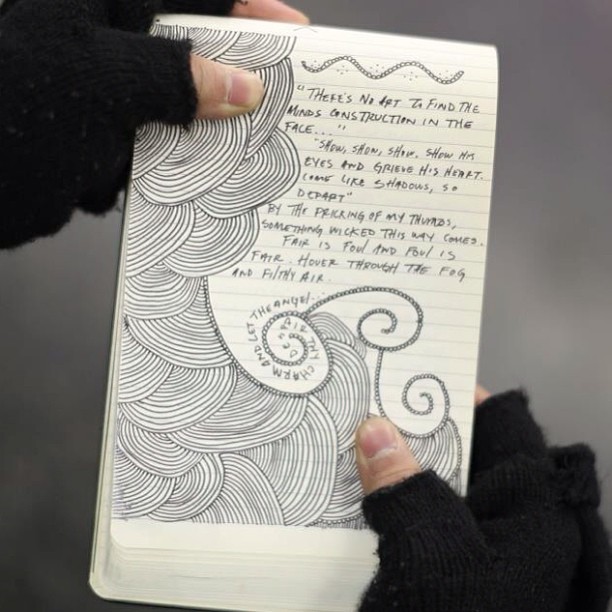 "THERE'S NO ART TO FIND THE
MINDS CONSTRUCTION IN THE
FACE..."
"SHOW, SHOW, SHOW, SHOW HIS
EYES AND GRIEVE HIS HEART.
COME LIKE SHADOWS, SO
DEPART"
BY THE PRICKING OF MY THUMBS,
SOMETHING WICKED THIS WAY COMES.
FAIR IS FOUL AND FOUL IS
FAIR. HOVER THROUGH THE FOG
AND FILTHY AIR.
DESPAIR THY CHARM AND LET THE ANGEL...